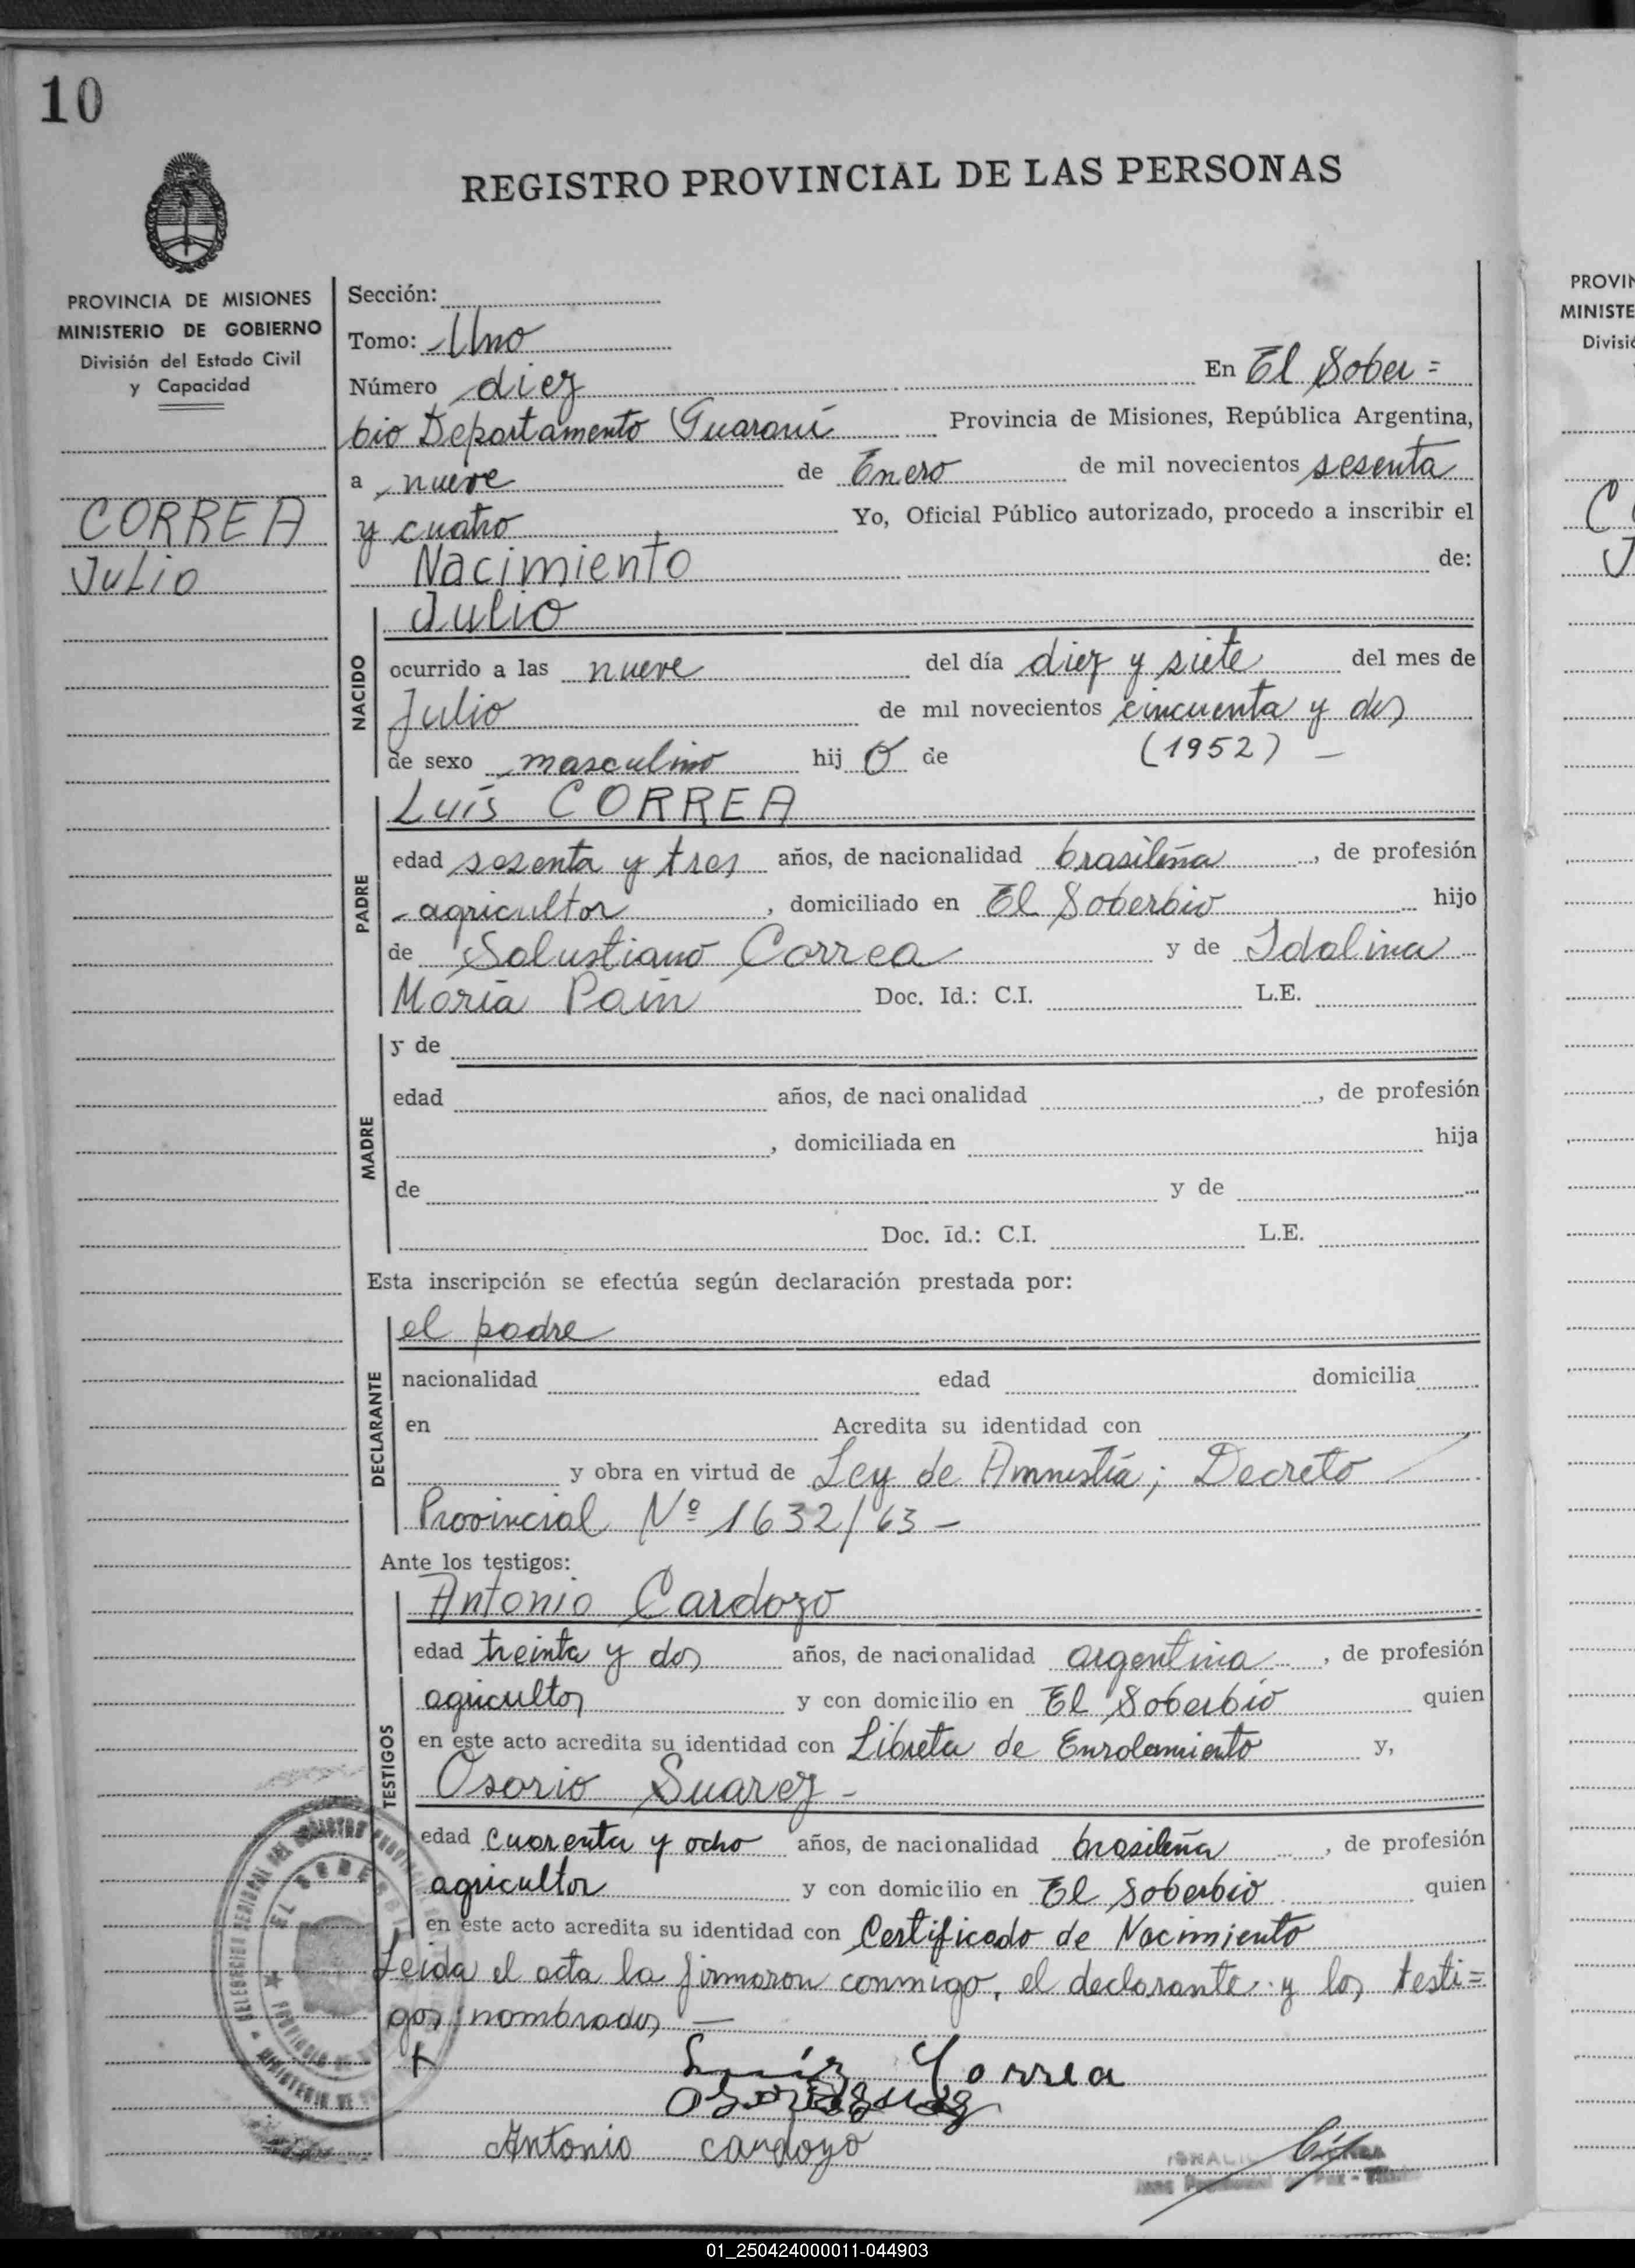 10
REGISTRO PROVINCIAL DE LAS PERSONAS
PROVINCIA DE MISIONES
MINISTERIO DE GOBIERNO
División del Estado Civil
y Capacidad
CORREA
Julio
Sección:
Tomo: Uno
Número diez En El Sober=
bio Departamento Guaraní Provincia de Misiones, República Argentina,
a nueve de Enero de mil novecientos sesenta
y cuatro Yo, Oficial Público autorizado, procedo a inscribir el
Nacimiento de:
NACIDO
Julio
ocurrido a las nueve del día diez y siete del mes de
Julio de mil novecientos cincuenta y dos
de sexo masculino hijo de (1952) —
PADRE
Luis CORREA
edad sesenta y tres años, de nacionalidad brasileña, de profesión
agricultor, domiciliado en El Soberbio hijo
de Salustiano Correa y de Idalina
Maria Pain Doc. Id.: C.I. L.E.
MADRE
y de
edad años, de nacionalidad , de profesión
, domiciliada en hija
de y de
Doc. Id.: C.I. L.E.
Esta inscripción se efectúa según declaración prestada por:
DECLARANTE
el padre
nacionalidad edad domicilia
en Acredita su identidad con
y obra en virtud de Ley de Amnistía; Decreto
Provincial Nº 1632/63 —
Ante los testigos:
TESTIGOS
Antonio Cardozo
edad treinta y dos años, de nacionalidad argentina, de profesión
agricultor y con domicilio en El Soberbio quien
en este acto acredita su identidad con Libreta de Enrolamiento y,
Osorio Suarez -
edad cuarenta y ocho años, de nacionalidad brasileña, de profesión
agricultor y con domicilio en El Soberbio quien
en este acto acredita su identidad con Certificado de Nacimiento
Leida el acta la firmaron conmigo, el declarante y los testi=
gos nombrados —
Luis Correa
Antonio cardozo
PROVIN
MINISTE
Divisió
01_250424000011-044903